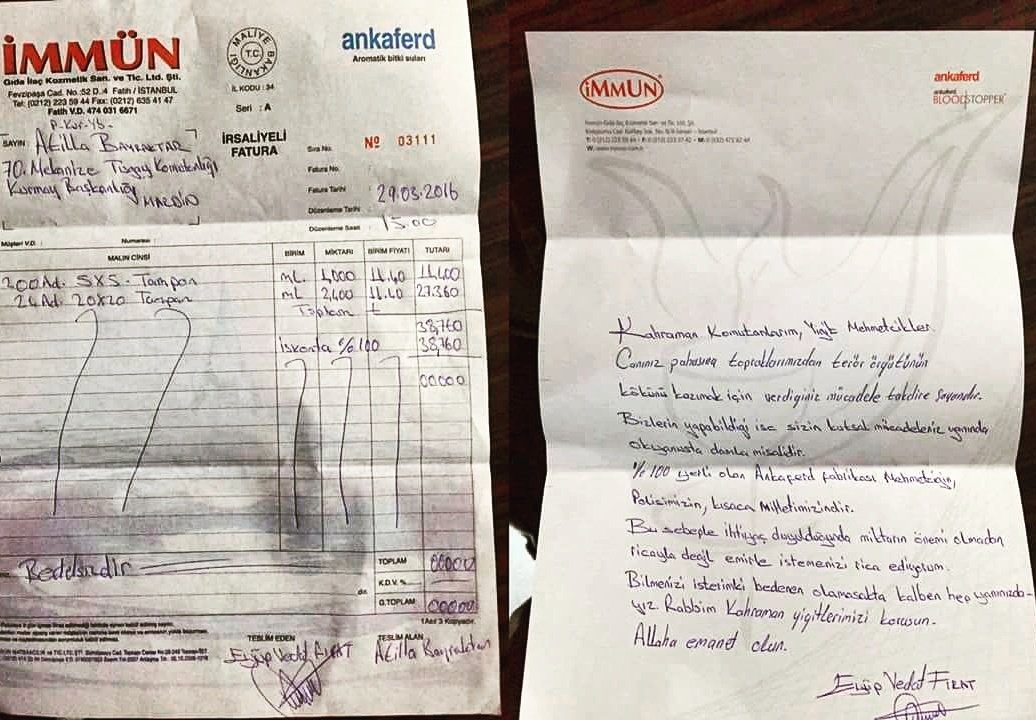 İMMÜN
Gıda İlaç Kozmetik San. ve Tic. Ltd. Şti.
Fevzipaşa Cad. No.:52 D.4 Fatih / İSTANBUL
Tel: (0212) 223 59 44 Fax: (0212) 635 41 47
Fatih V.D. 474 031 6671
MALİYE BAKANLIĞI
T.C.
İL KODU : 34
Seri : A
ankaferd
Aromatik bitki suları
İRSALİYELİ
FATURA
Sıra No.
Nº 03111
Fatura No.
Fatura Tarihi 29.03.2016
Düzenleme Tarihi
Düzenleme Saati 15.00
SAYIN; Atilla BAYRAKTAR
70. Mekanize Tugay Komutanlığı
Kurmay Başkanlığı
MARDİN
Müşteri V.D. : Numarası :
MALIN CİNSİ BİRİM MİKTARI BİRİM FİYATI TUTARI
200 Ad. 5X5 Tampon mL 1,000 11.40 11,400
24 Ad. 20x20 Tampon mL 2,400 11.40 27.360
Toplam
38,760
İskonto % 100 38,760
00000
Bedelsizdir
TOPLAM 00000
K.D.V. %
G.TOPLAM 00000
1 Asıl 3 Kopyadır.
TESLİM EDEN TESLİM ALAN
Eyüp Vedat FIRAT Atilla Bayraktar
İMMÜN
ankaferd
ankaferd
BLOODSTOPPER
Kahraman Komutanlarım, Yiğit Mehmetcikler.
Canınız pahasına topraklarımızdan terör örgütünün
kökünü kazımak için verdiginiz mücadele takdire şayandır.
Bizlerin yapabildiği ise sizin kutsal mücadeleniz yanında
okyanusta damla misalidir.
% 100 yerli olan Ankaferd fabrikası Mehmetciğin,
Polisimizin, kısaca Milletimizindir.
Bu sebeple ihtiyaç duyulduğunda miktarın önemi olmadan
ricayla değil emirle istemenizi rica ediyorum.
Bilmenizi isterimki bedenen olamasakta kalben hep yanınızda-
yız. Rabbim Kahraman yigitlerimizi korusun.
Allaha emanet olun.
Eyüp Vedat FIRAT